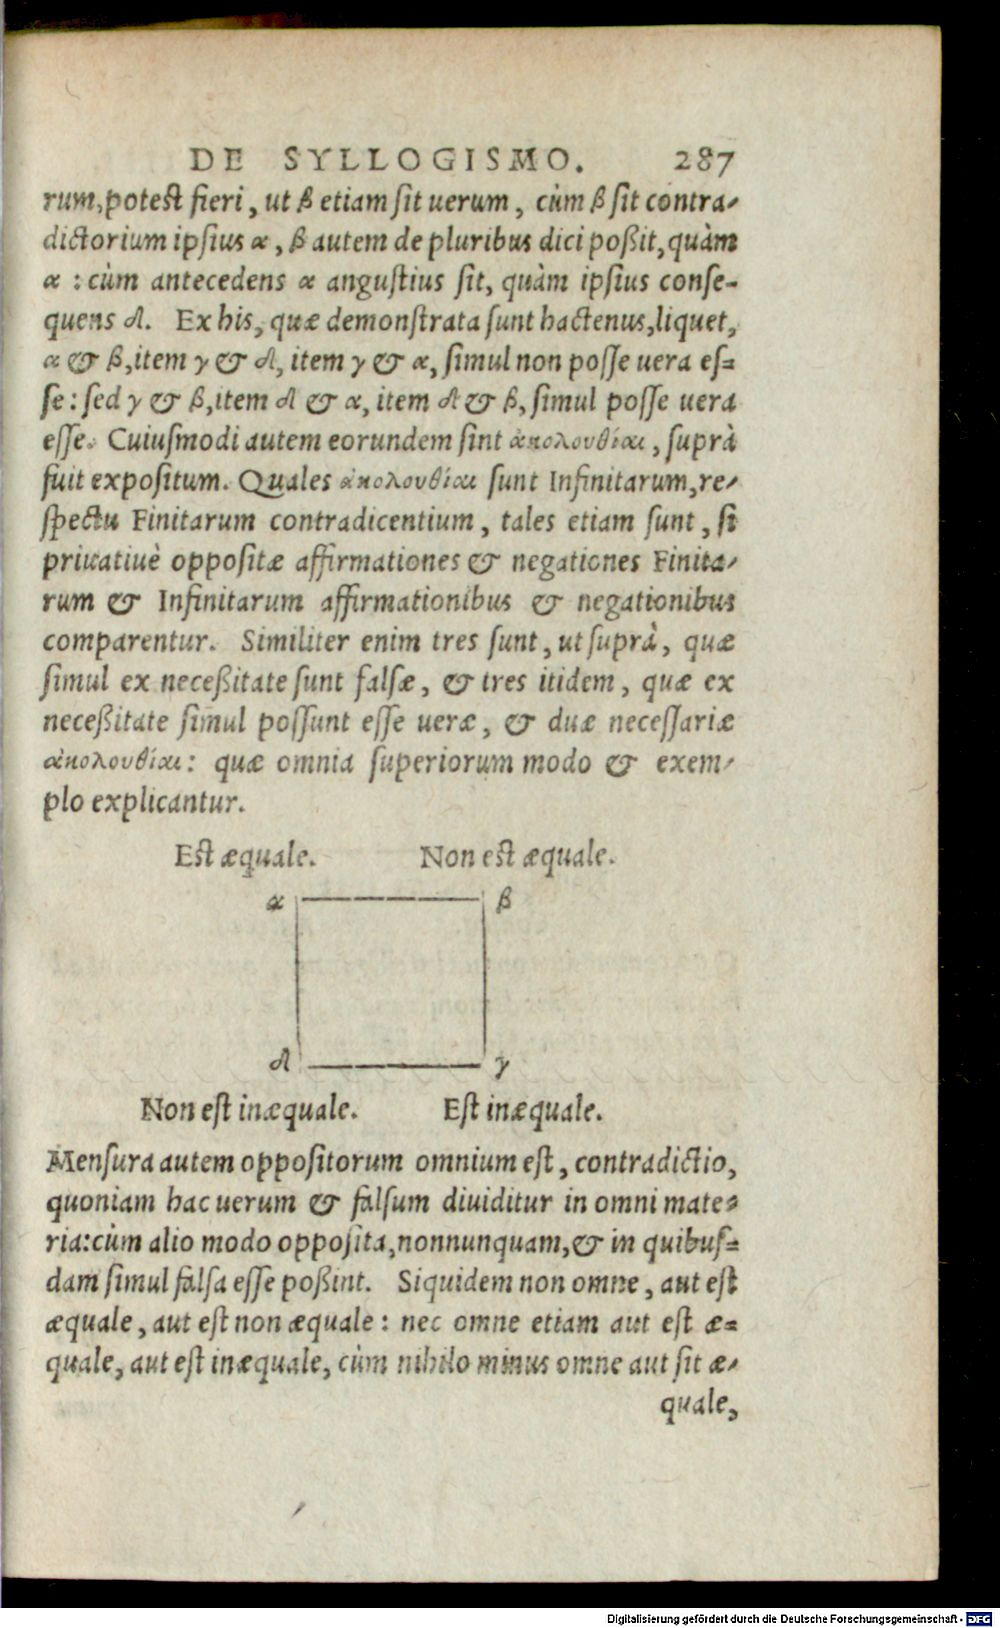 DE SYLLOGISMO. 287
rum, potest fieri, ut β etiam sit uerum, cùm β sit contra-
dictorium ipsius α, β autem de pluribus dici poßit, quàm
α: cùm antecedens α angustius sit, quàm ipsius conse-
quens δ. Ex his, quæ demonstrata sunt hactenus, liquet,
α & β, item γ & δ, item γ & α, simul non posse uera es-
se: sed γ & β, item δ & α, item δ & β, simul posse uera
esse. Cuiusmodi autem eorundem sint ἀκολουθίαι, suprà
fuit expositum. Quales ἀκολουθίαι sunt Infinitarum, re-
spectu Finitarum contradicentium, tales etiam sunt, si
priuatiuè oppositæ affirmationes & negationes Finita-
rum & Infinitarum affirmationibus & negationibus
comparentur. Similiter enim tres sunt, ut suprà, quæ
simul ex neceßitate sunt falsæ, & tres itidem, quæ ex
neceßitate simul possunt esse ueræ, & duæ necessariæ
ἀκολουθίαι: quæ omnia superiorum modo & exem-
plo explicantur.
Est æquale. Non est æquale.
α β
δ γ
Non est inæquale. Est inæquale.
Mensura autem oppositorum omnium est, contradictio,
quoniam hac uerum & falsum diuiditur in omni mate-
ria: cùm alio modo opposita, nonnunquam, & in quibus-
dam simul falsa esse poßint. Siquidem non omne, aut est
æquale, aut est non æquale: nec omne etiam aut est æ-
quale, aut est inæquale, cùm nihilo minus omne aut sit æ-
quale,
Digitalisierung gefördert durch die Deutsche Forschungsgemeinschaft - DFG